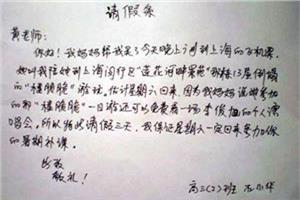 请假条
黄老师：
你好！我妈妈帮我买了今天晚上到上海的飞机票，
她叫我陪她到上海闵行区“莲花河畔景苑”那栋13层倒塌
的“楼脆脆”游玩，估计星期六回来。因为我妈妈说参加
的那“楼脆脆”一日游还可以免费看一场李俊旭的个人演
唱会，所以特此请假三天，我保证星期六一定回来参加你
的暑期补课。
此致
敬礼！
高三(2)班